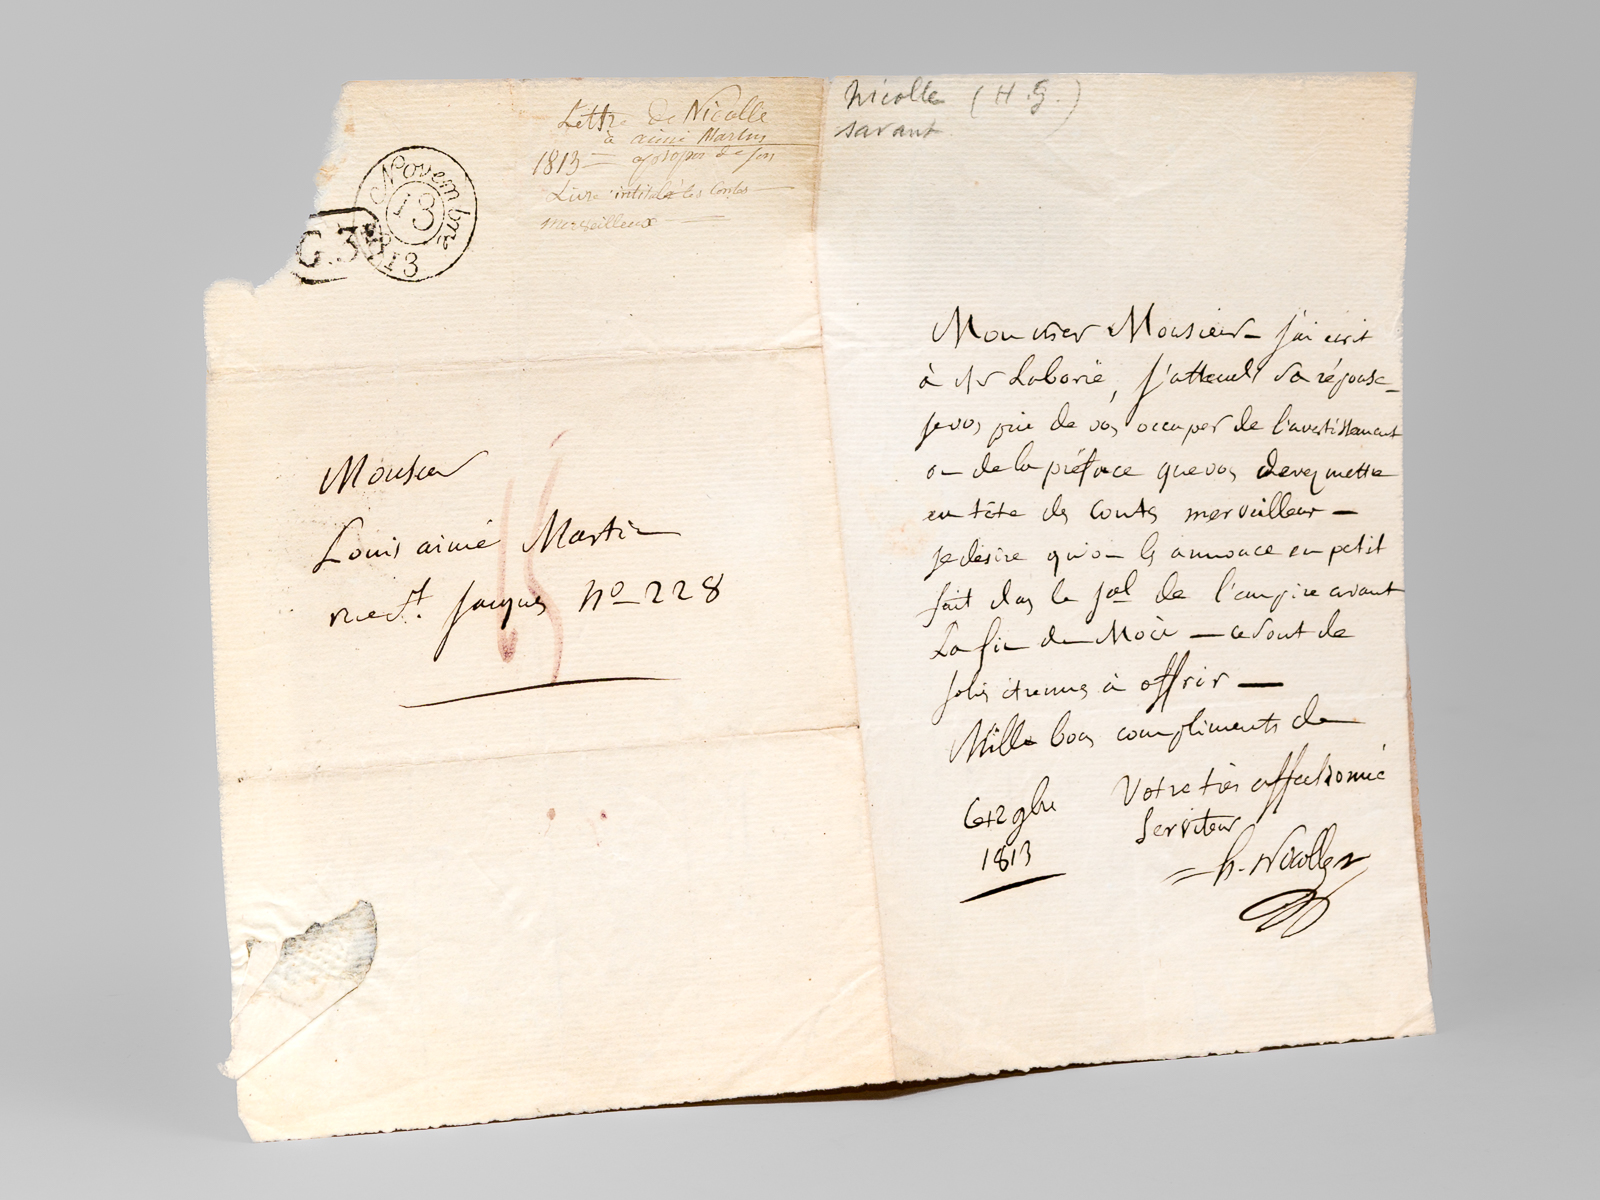 Lettre de Nicolle
à aimé Martin
1813 — apropos de son
Livre intitulé les Contes
merveilleux
Novembre
13
1813
G.3
Monsieur
Louis aimé Martin
rue St. Jacques No 228
Nicolle (H. G.)
savant
Mon cher Monsieur — j'ai écrit
à Mr Laborie, j'attends sa réponse —
je vos prie de vos occuper de l'avertissement
ou de la préface que vos devez mettre
en tête des contes merveilleux —
je desire qu'on les annonce en petit
fait dans le jal de l'empire avant
la fin du Mois — ce sont de
jolies étrennes à offrir —
Mille bons compliments de
Votre très affectionné
Serviteur
h. Nicolle
Ce 12 9bre
1813